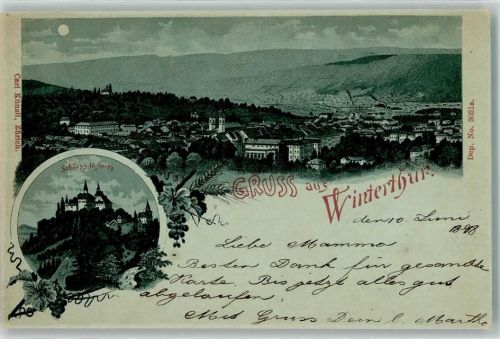 Carl Künzli, Zürich.
Dep. No. 3051a.
GRUSS aus
Winterthur.
den 10. Juni
1898
Liebe Mamma
Besten Dank für gesandte
Karte. Bis jetzt alles gut
abgelaufen.
Mit Gruss Dein l. Marth